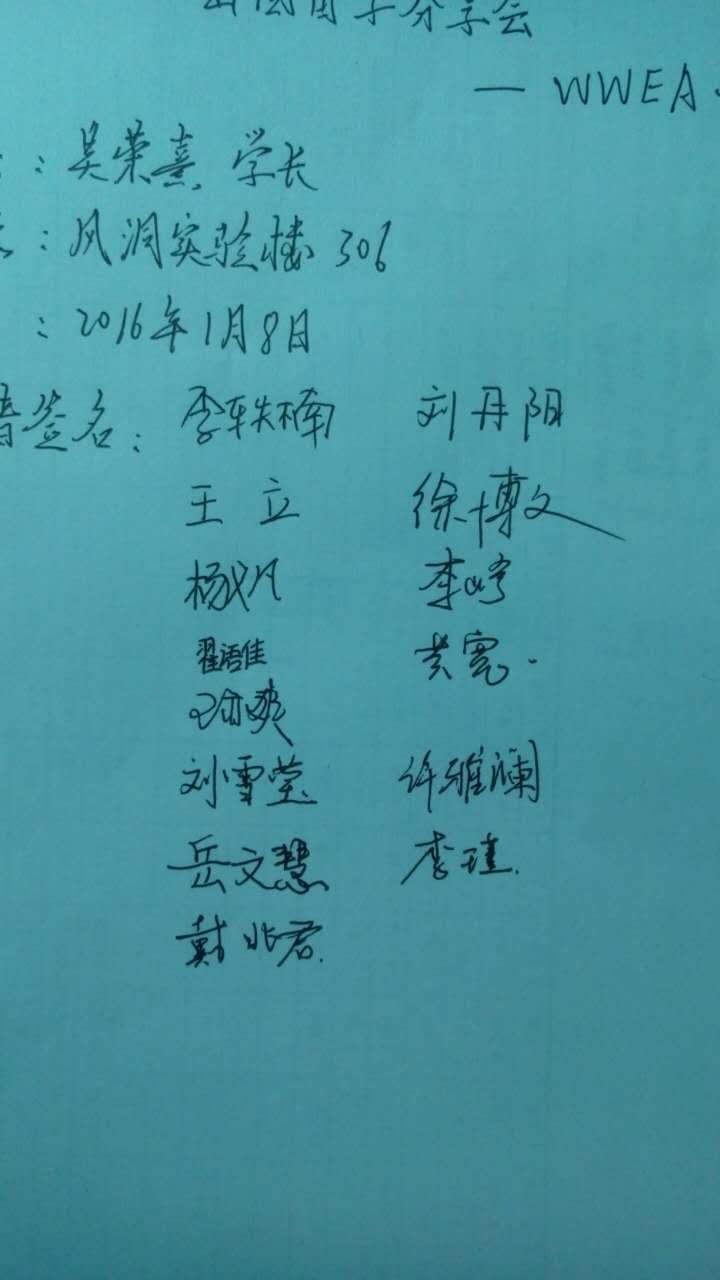 出国留学分享会
— WWEA
：吴荣熹 学长
：风洞实验楼 306
：2016年1月8日
者签名：李轶楠 刘丹阳
王立 徐博文
杨帆 李婷
翟语佳 黄宽
刘雪莹 许雅澜
岳文慧 李瑾
戴兆君